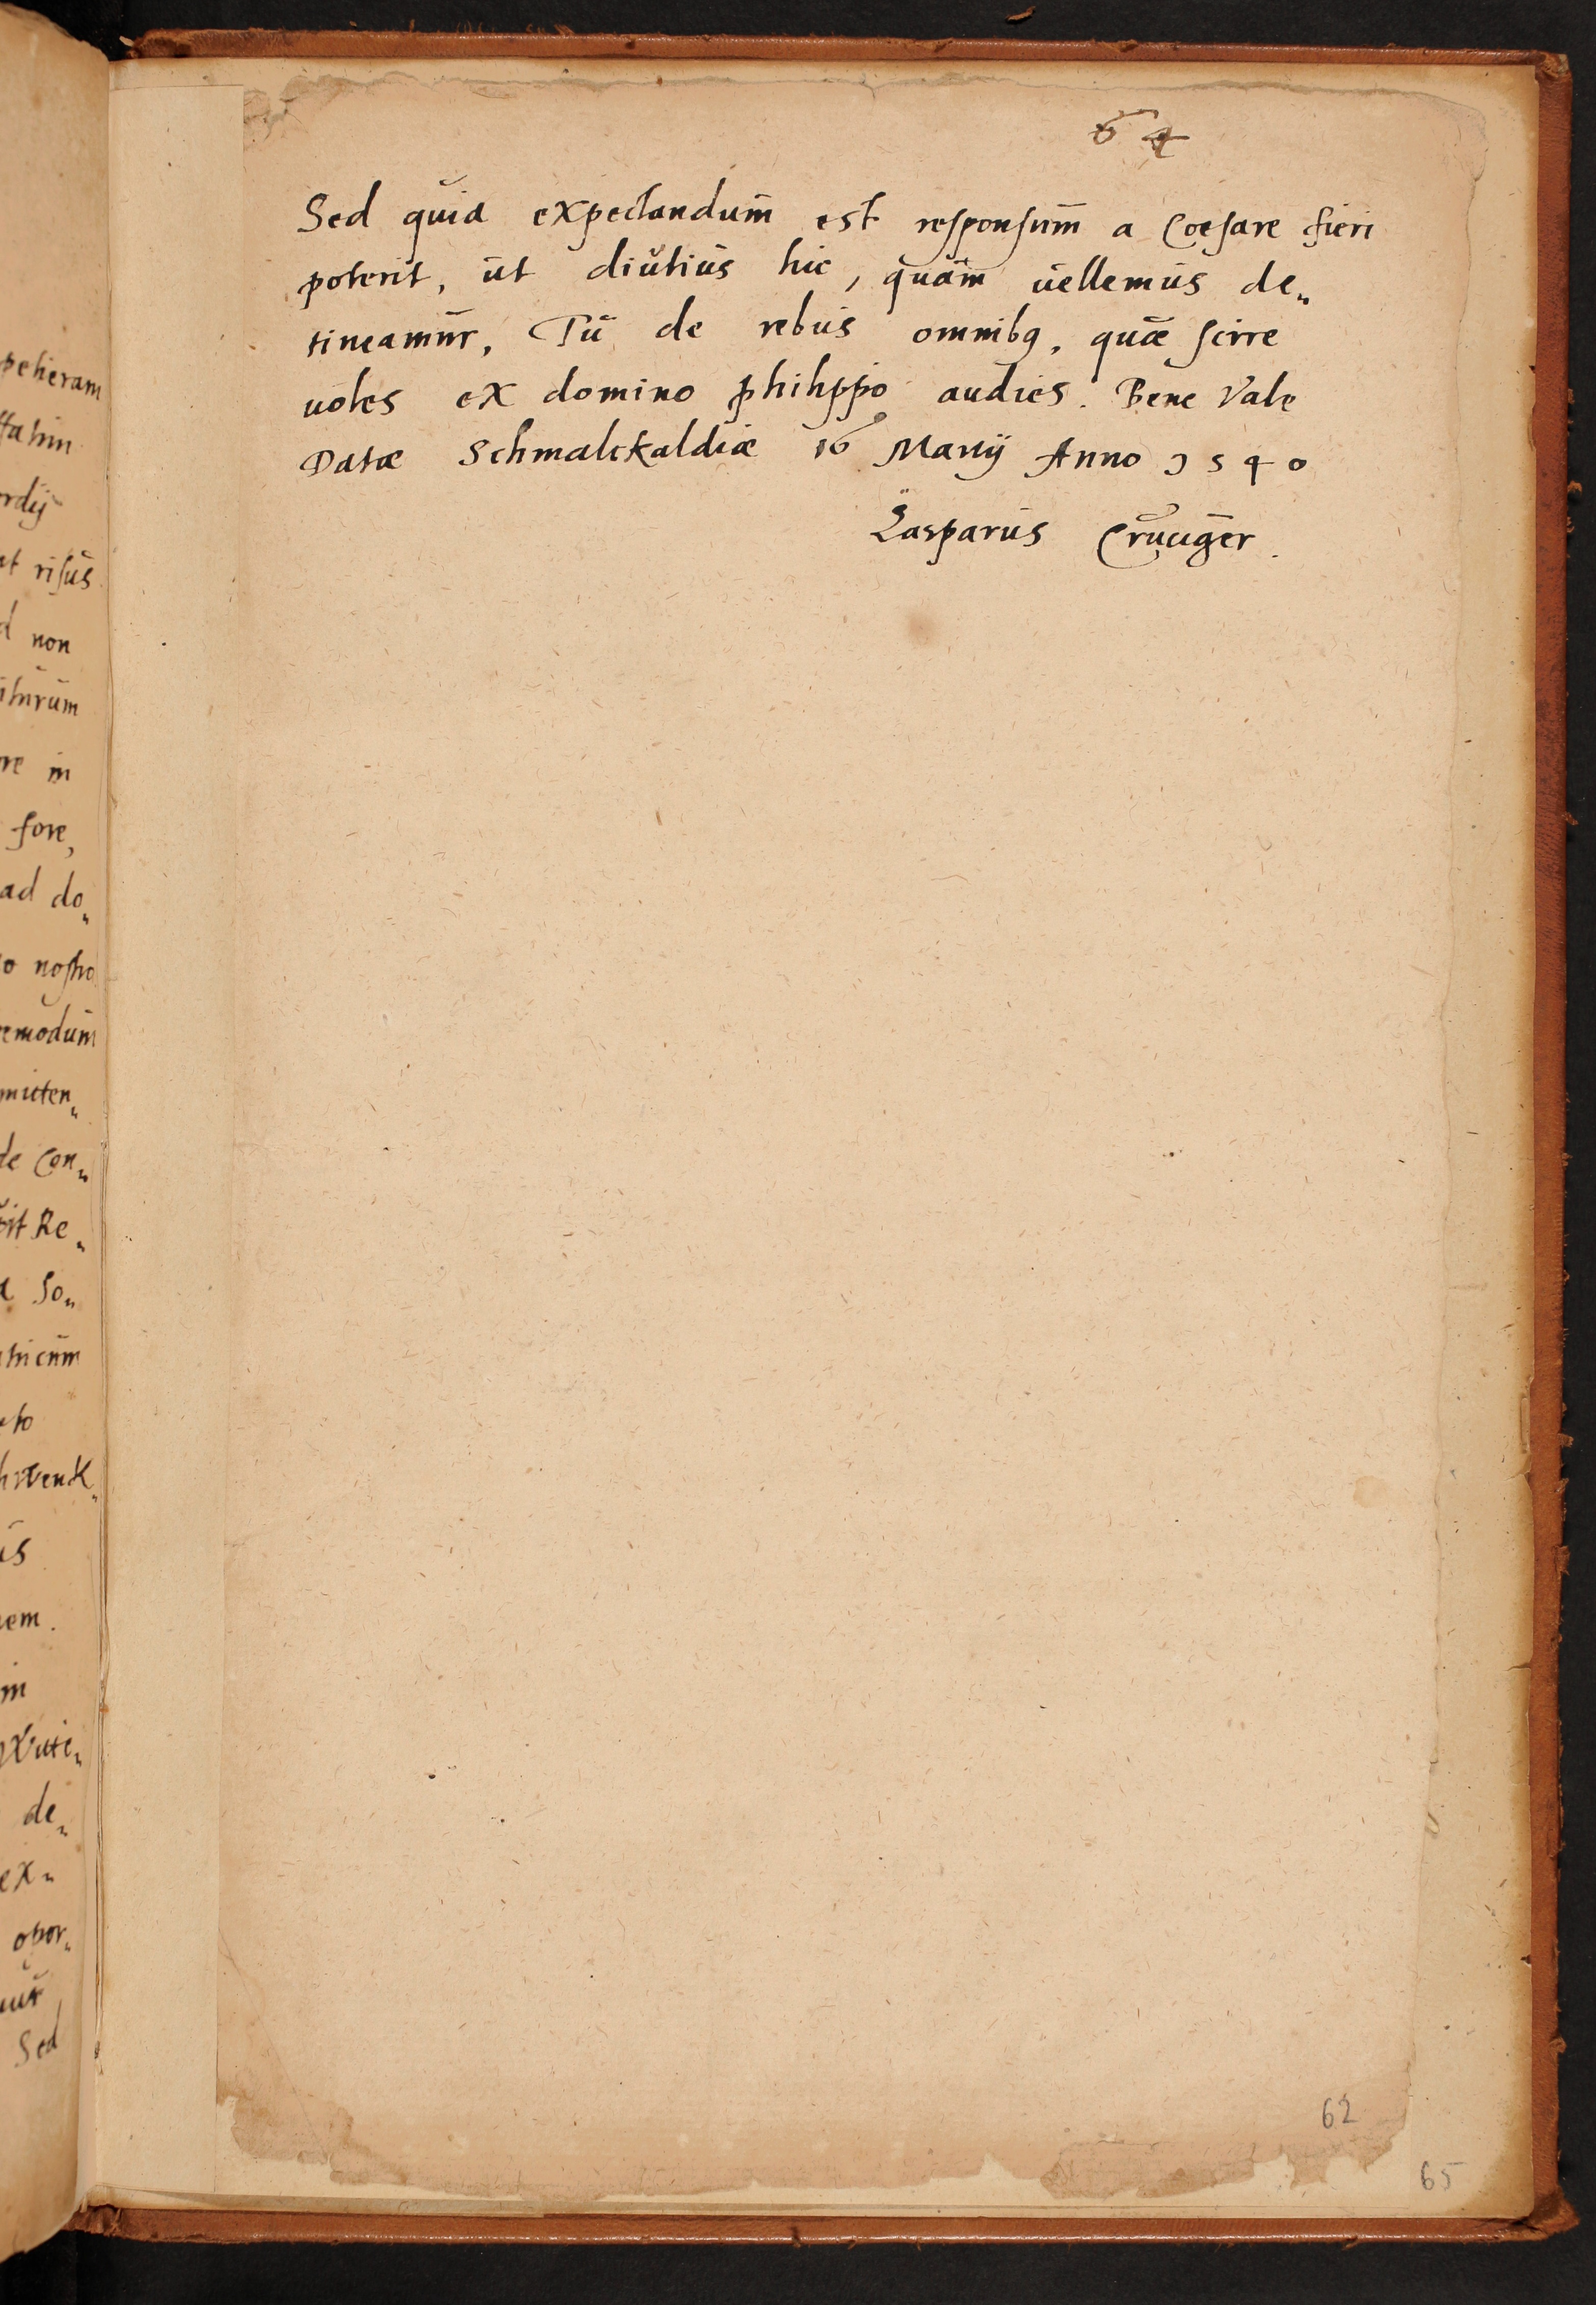 64
Sed quia expectandum est responsum a Coesare fieri
poterit, ut diutius hic, quam uellemus de„
tineamur, Tu de rebus omnibq, quæ scire
uoles ex domino philippo audies. Bene Vale
Datæ Schmalckaldiæ 16 Martij Anno 1540
Casparus Cruciger.
62
65
petieram
rdij
et risus
non
iturum
re in
fore,
ad do„
o nostro
emodum
mitten„
de Con„
Re„
So„
hwenck„
us
em.
in
de„
ex„
opor„
Sed